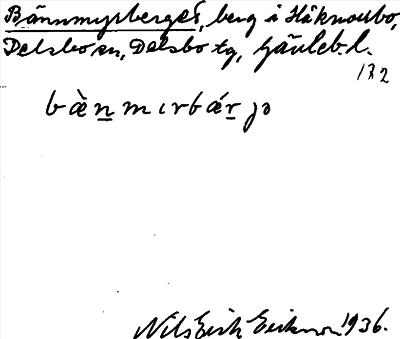 Bännmyrberget, berg å Håknorbo,
Delsbo sn, Delsbo tg, Gävleb.l.
132
bæ̀n̲mɩrbár̲jə
Nils Erik Erikson 1936.